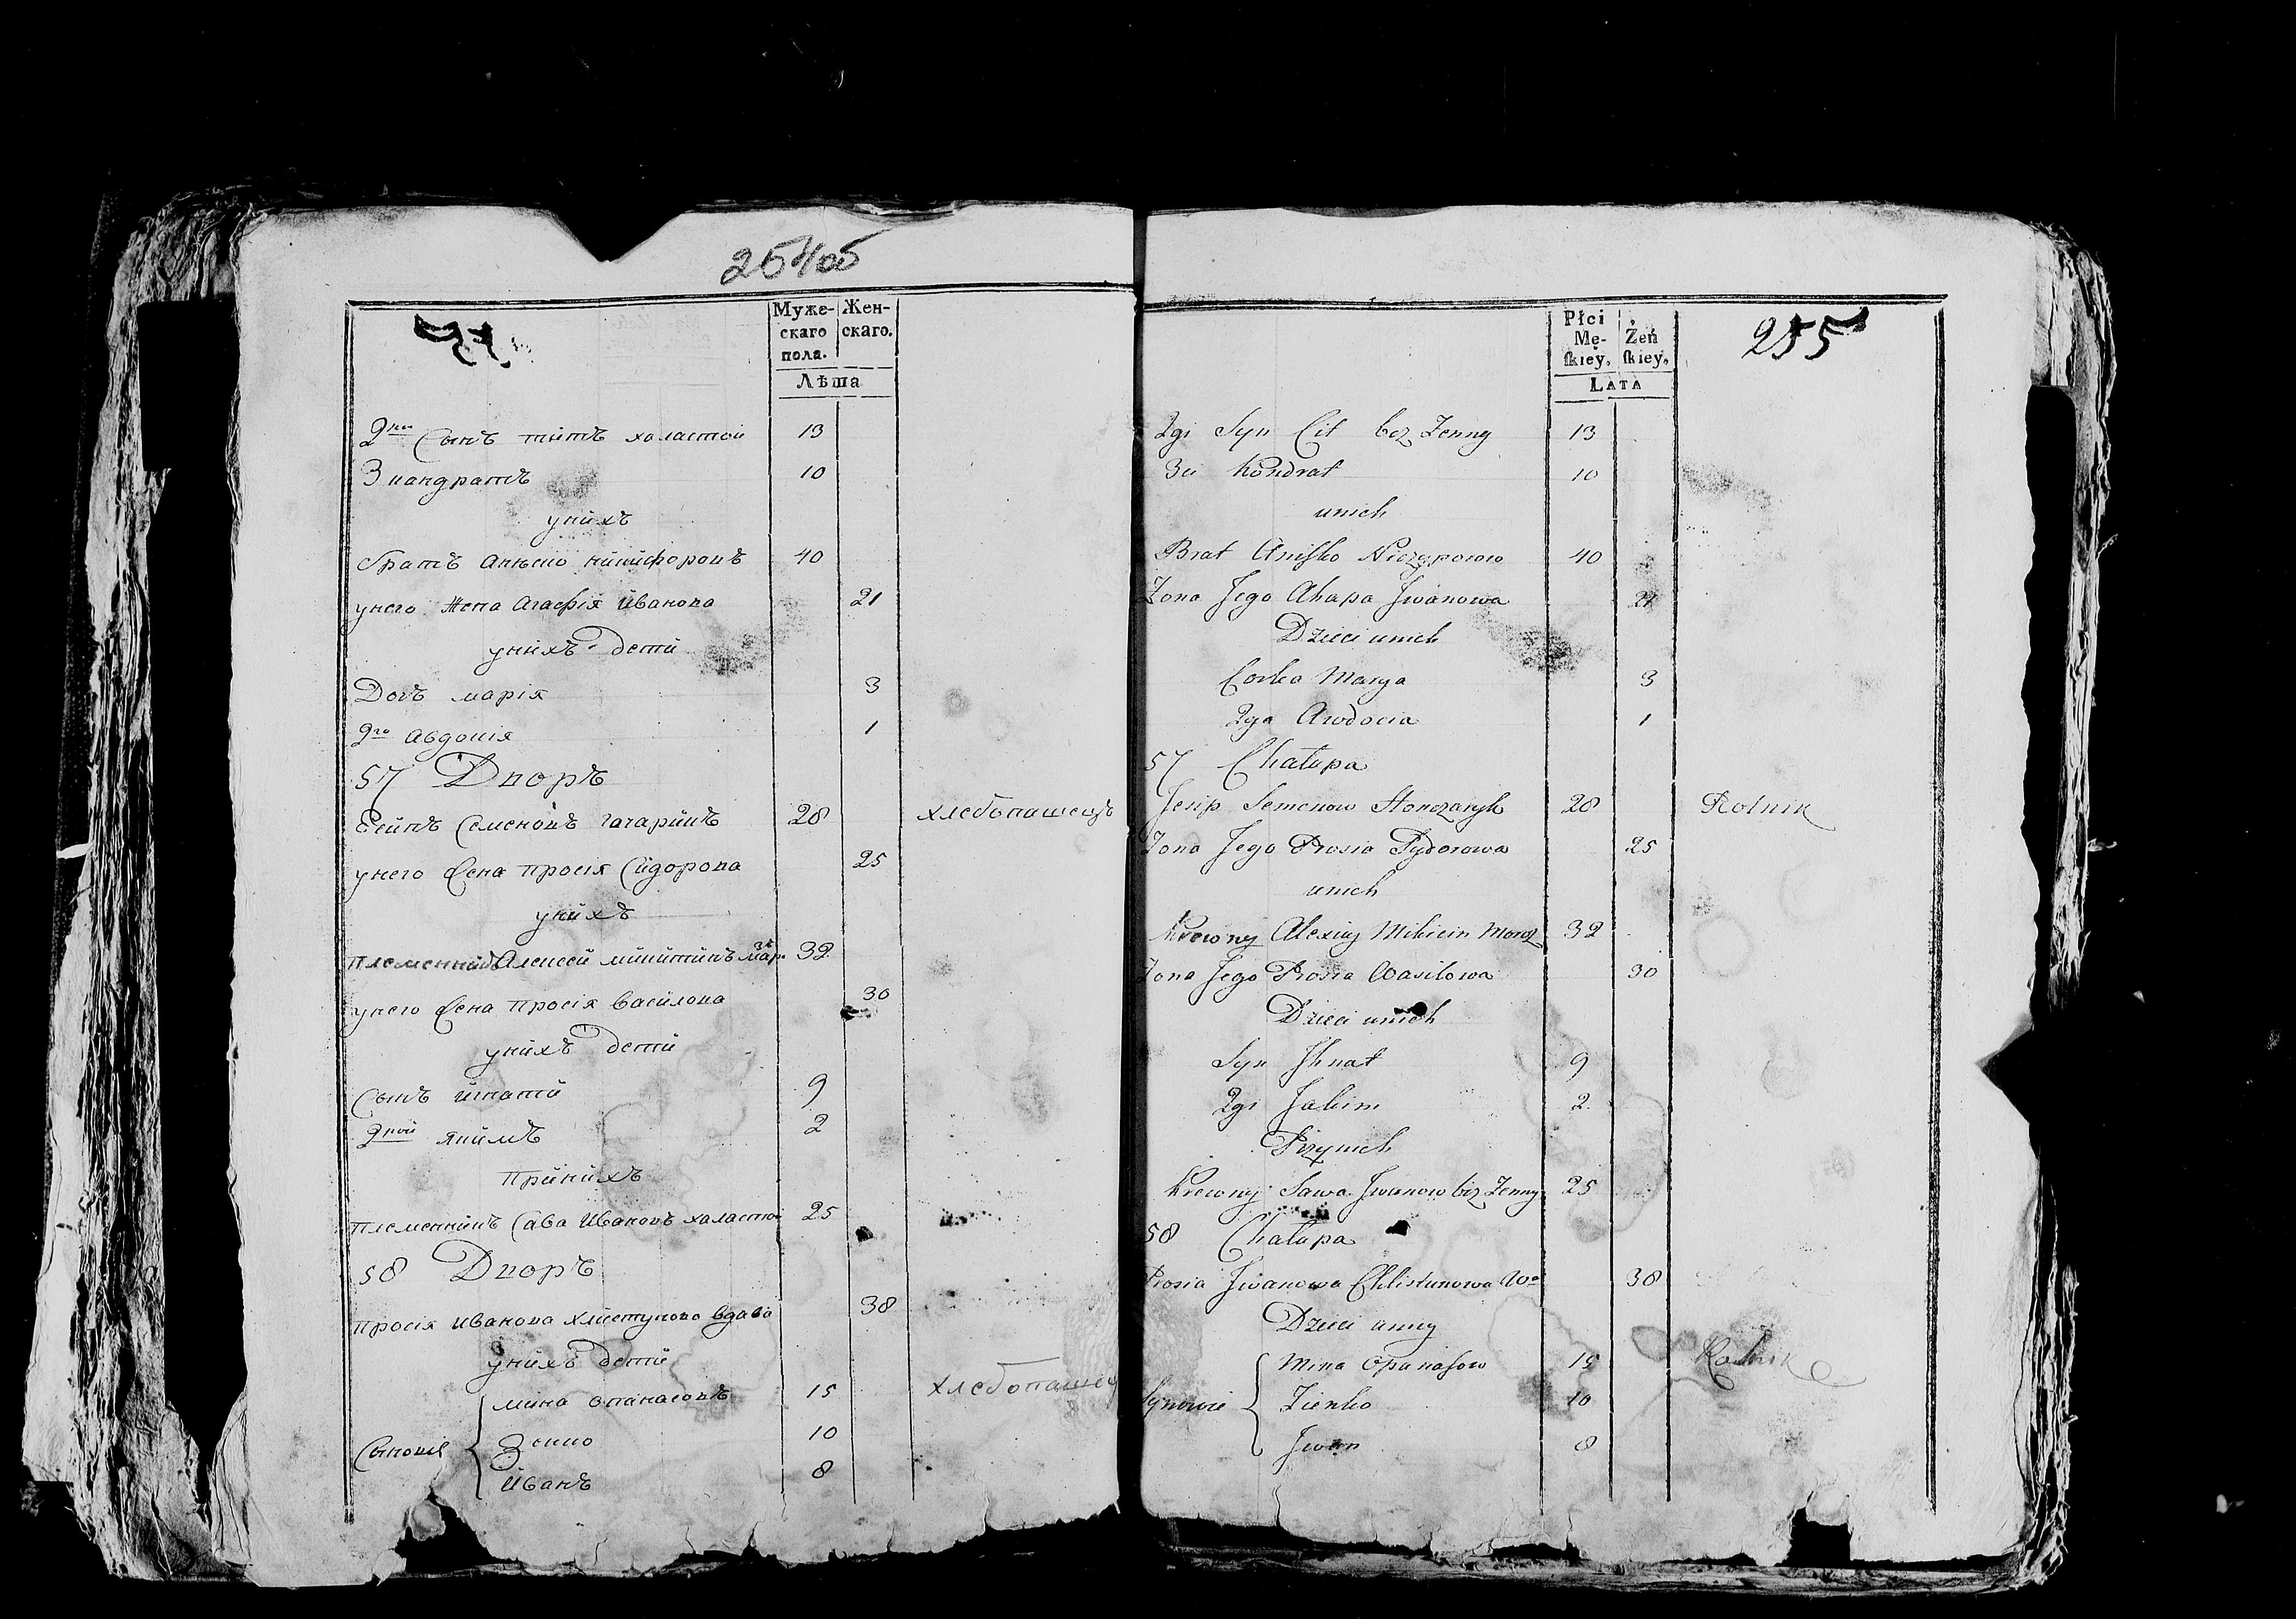 254об
Муже-
скаго
пола.
Жен-
скаго.
Лѣта
2ой Сынъ титъ халастой 13
3 кандратъ 10
унихъ
братъ анкъсио никифоровъ 40
унего Жена Агафія Иванова 21
унихъ дети
Дочъ марія 3
2го авдокія 1
57 Дворъ
Есипъ Семеновъ 28 хлебопашецъ
унего Жена просія Сидорова 25
унихъ
племенникъ Алексей микитинъ 32
унего Жена просія васілова 30
унихъ дети
Сынъ игнатй 9
2кой якимъ 2
принихъ
племенникъ Сава Ивановъ халастой 25
58 Дворъ
просія иванова хлистунова вдава 38
унихъ дети
мина опанасовъ 15 хлебопашец
Сыновя
Зѣнко 10
Иванъ 8
Płci
Mę-
skiey.
Żeń
skiey.
Lata
255
2gi Syn Cit bez Zenny 13
3ci Kondrat 10
unich
Brat Anisko Niczyporow 40
Zona Jego Ahapa Jwanowa 21
Dzieci unich
Corka Marya 3
2ga Awdocia 1
57 Chałupa
Jesip Semenow Honczaryk 28 Rolnik
Zona Jego Prosia Sydorowa 25
unich
Krewny Alexiey Mikicin 32
Zona Jego Prosia Wasilowa 30
Dzieci unich
Syn Jhnat 9
2gi Jakim 2
Przynich
Krewny Sawa Jwanow bez Zenny 25
58 Chałupa
Prosia Jwanowa Chlistunowa Wa 38
Dzieci unny
Mina Opanasow 15 Rolnik
Synowie
Zienko 10
Jwan 8